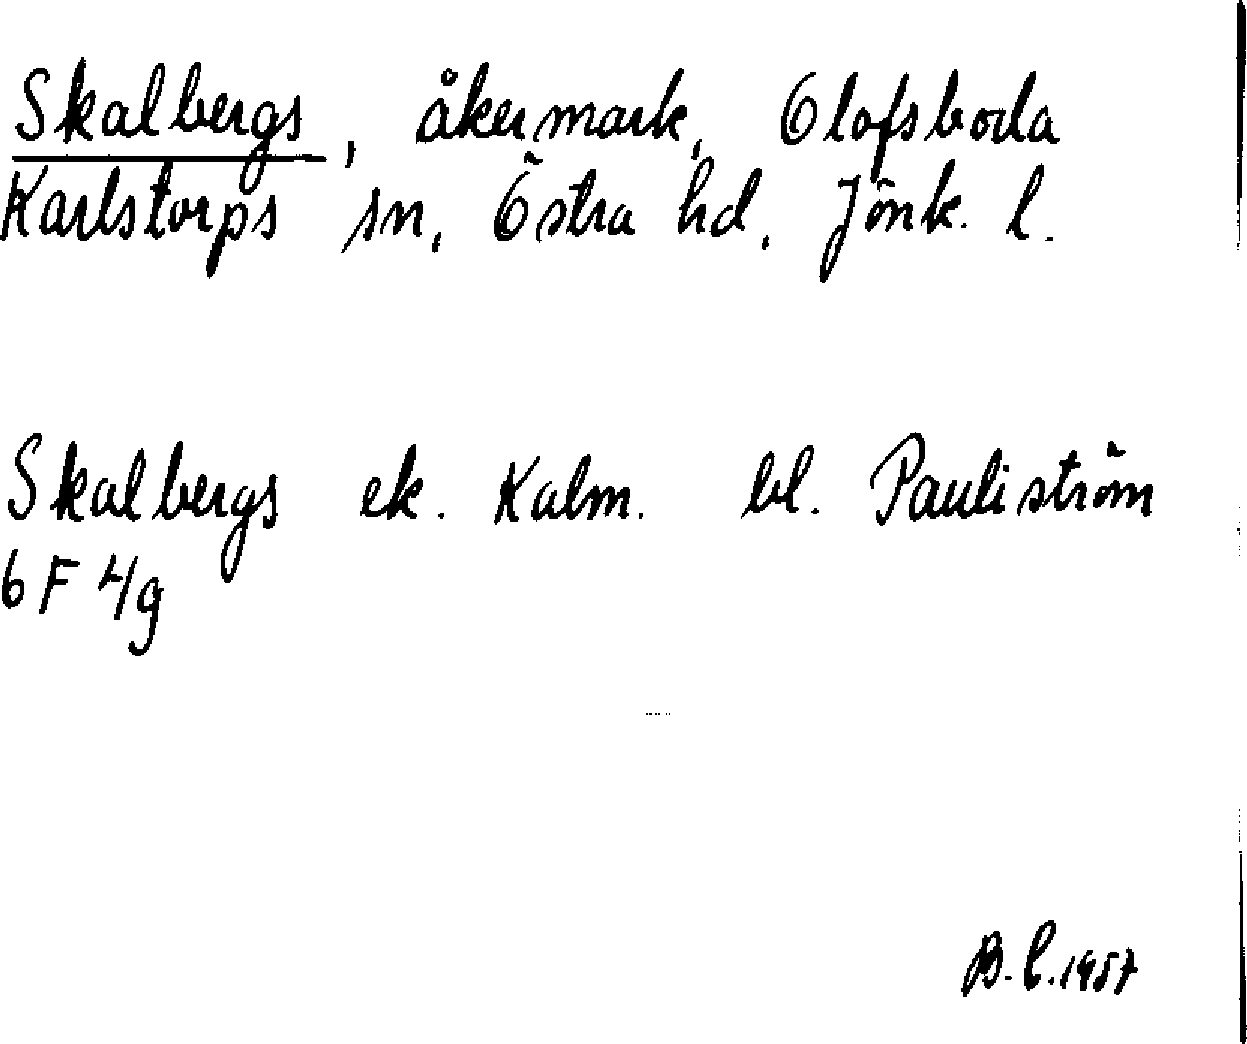 Skalbergs, åkermark, Olofsboda
Karlstorps sn, Östra hd, Jönk. l.
Skalbergs ek. Kalm. bl. Pauliström
6 F 4g
B.C.1957